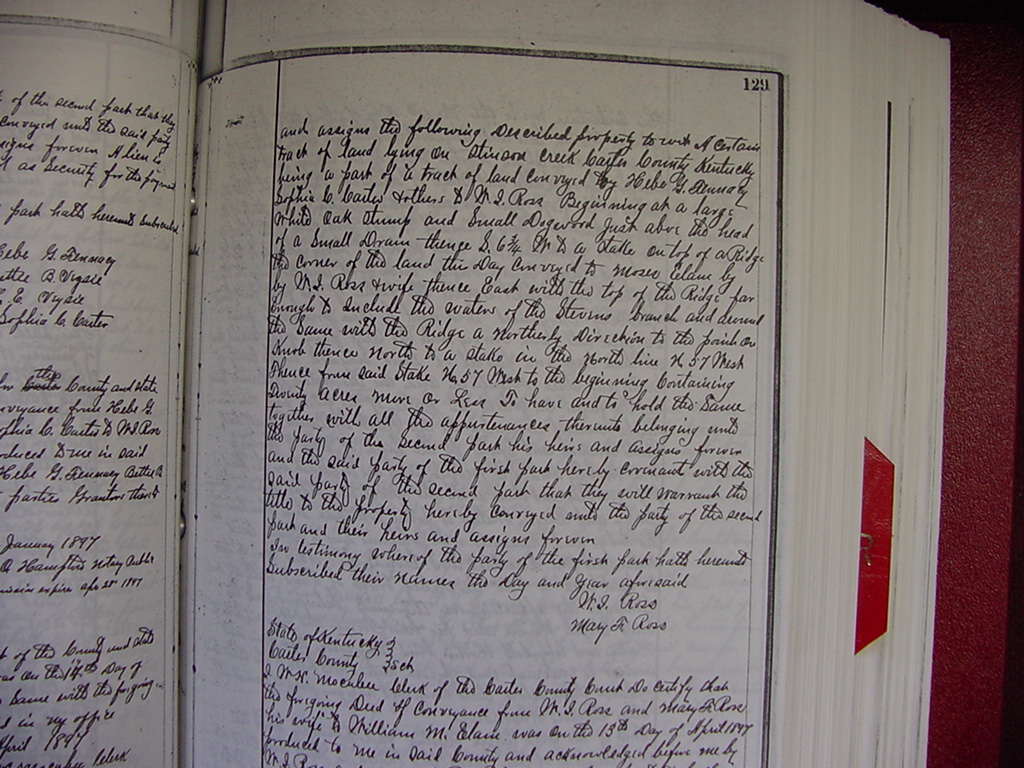 of the second part that they
conveyed unto the said party
assigns forever A lien is
as Security for the payment
part hath hereunto Subscribed
Hebe G. Tennacy
B. Vigsie
C. Vigsie
Sophia C. Carter
County and state
conveyance from Hebe G.
Sophia C. Carter to W.J. Ross
produced to me in said
Hebe G. Tennacy Bettie B.
parties Grantors thereto
January 1897
Hampton Notary Public
expires Apr 28th 1897
of the County and state
was on the 14th Day of
Same with the forgoing
in my office
April 1897
Clerk
129
and assigns the following Described property to wit A Certain
tract of land lying on Stinson Creek Carter County Kentucky
being a part of a tract of land conveyed by Hebe G. Tennacy
Sophia C. Carter & others to W.J. Ross Beginning at a large
White Oak Stump and Small Dogwood Just above the head
of a Small Drain thence S. 6¾ W to a Stake on top of a Ridge
the corner of the land this Day Conveyed to Moses Elam by
by W.J. Ross & wife thence East with the top of the Ridge far
enough to include the waters of the Stevens branch and around
the Same with the Ridge a Northerly Direction to the point or
Knob thence North to a Stake in the North line N. 57 West
thence from said Stake N. 57 West to the beginning Containing
Twenty acres more or Less To have and to hold the Same
together with all the appurtenances thereunto belonging unto
the party of the Second part his heirs and assigns forever
and the said party of the first part hereby covenant with the
said party of the second part that they will warrant the
title to the property hereby conveyed unto the party of the second
part and their heirs and assigns forever
In testimony whereof the party of the first part hath hereunto
Subscribed their names the Day and Year aforesaid
W.J. Ross
Mary F. Ross
State of Kentucky }
Carter County } Sct
I W.N. McCubee Clerk of the Carter County Court Do certify that
the forgoing Deed of Conveyance from W.J. Ross and Mary F. Ross
his wife to William M. Elam was on the 13th Day of April 1897
produced to me in said County and acknowledged before me by
W.J. Ross